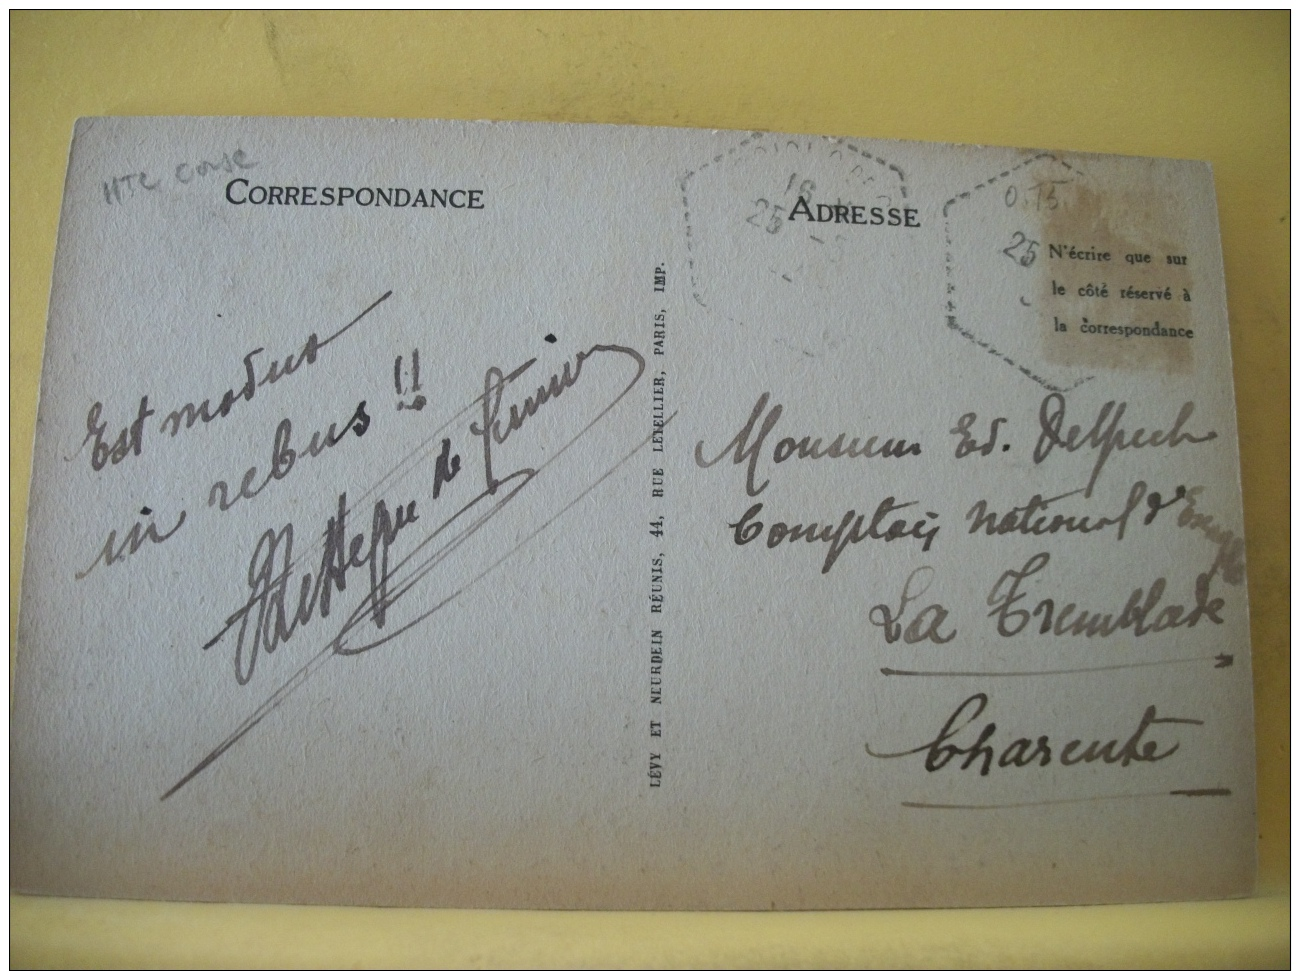 HTE CORSE
CORRESPONDANCE
Est modus
in rebus !!
de
LÉVY ET NEURDEIN RÉUNIS, 44, RUE LETELLIER, PARIS, IMP.
16
25
ADRESSE
0.15
25
N'écrire que sur
le côté réservé à
la correspondance
Monsieur Ed. Delpech
Comptoir National d'Escompte
La Tremblade
Charente